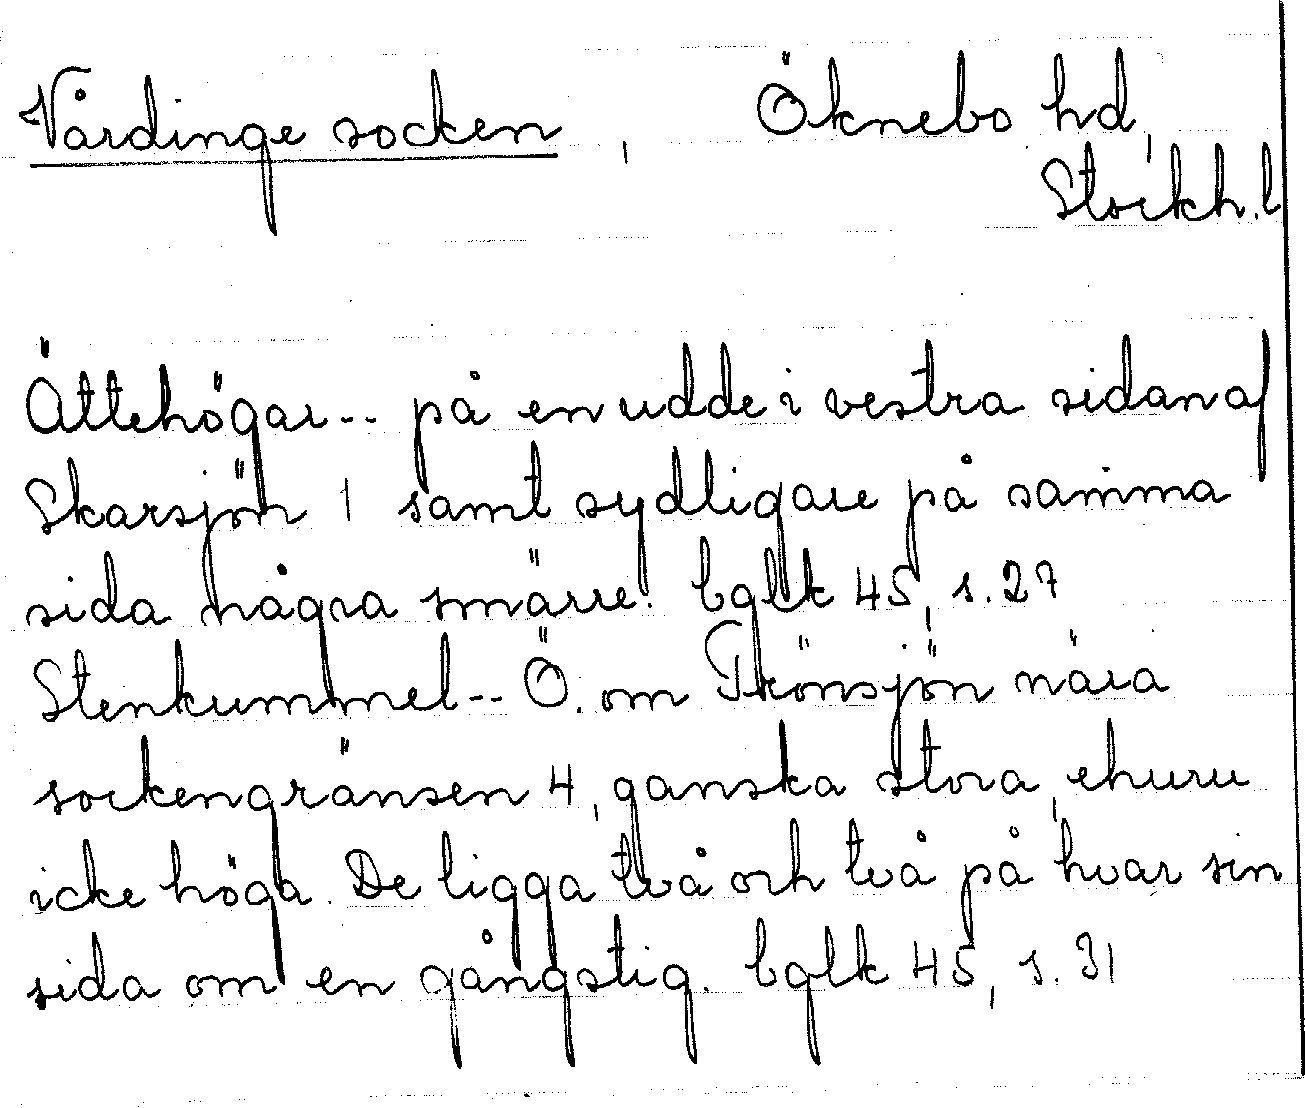 Vårdinge socken, Öknebo hd,
Stockh. l
Ättehögar -- på en udde i vestra sidan af
Skarsjön 1 samt sydligare på samma
sida några smärre. bglk 45, s. 27
Stenkummel -- Ö. om Tkönsjön nära
sockengränsen 4, ganska stora, ehuru
icke höga. De ligga två och två på hvar sin
sida om en gångstig. bglk 45, s. 31